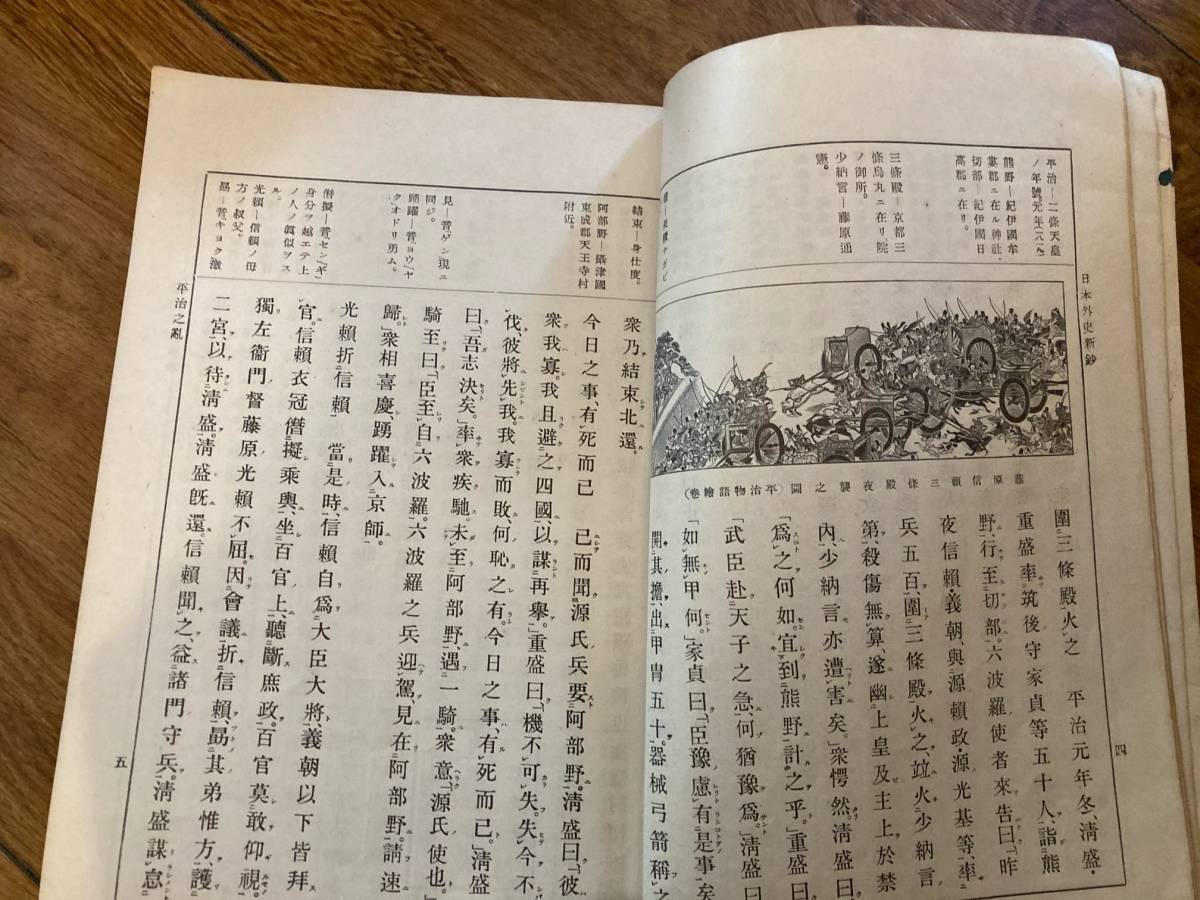 日本外史新鈔
四
平治―二條天皇
ノ年號。元年(一八一九)
熊野―紀伊國牟
婁郡ニ在ル神社。
切部―紀伊國日
高郡ニ在リ。
三條殿―京都三
條烏丸ニ在リ院
ノ御所。
少納言―藤原通
憲。
藤原信賴三條殿夜襲之圖(平治物語繪卷)
圍三條殿火之　平治元年冬、淸盛・
重盛率筑後守家貞等五十人、詣熊
野、行至切部。六波羅使者來告曰「昨
夜信賴義朝與源賴政・源光基等、率
兵五百、圍三條殿火之竝火少納言
第、殺傷無算、遂幽上皇及主上於禁
內、少納言亦遭害矣。」衆愕然。淸盛曰
「爲之何如。宜到熊野計之乎。」重盛曰
「武臣赴天子之急、何猶豫爲。」淸盛曰
「如無甲何。」家貞曰「臣豫慮有是事矣
開其擔、出甲冑五十。器械弓箭稱之
結束―身仕度。
阿部野―攝津國
東成郡天王寺村
附近。
見―音ゲン現ニ
同ジ。
踴躍―音ヨウヤ
ク、オドリ勇ム。
僭擬―音センギ、
身分ヲ越エテ上
ノ人ノ眞似ヲス
ル。
光賴―信賴ノ母
方ノ叔父。
勗―音キヨク激
衆乃結束北還。
今日之事、有死而已　已而聞源氏兵要阿部野。淸盛曰、「彼
衆我寡。我且避之四國、以謀再擧。」重盛曰「機不可失。失今不
伐、彼將先我。我寡而敗、何恥之有。今日之事、有死而已。」淸盛
曰「吾志決矣。」率衆疾馳。未至阿部野、遇一騎。衆意、「源氏使也。」
騎至曰、「臣至自六波羅。六波羅之兵迎駕、見在阿部野。請速
歸。」衆相喜慶、踴躍入京師。
光賴折信賴　當是時、信賴自爲大臣大將、義朝以下皆拜
官。信賴衣冠僭擬乘輿、坐百官上、聽斷庶政。百官莫敢仰視。
獨左衞門督藤原光賴不屈。因會議折信賴、勗其弟惟方護
二宮、以待淸盛。淸盛旣還。信賴聞之、益諸門守兵。淸盛謀怠
平治之亂
五